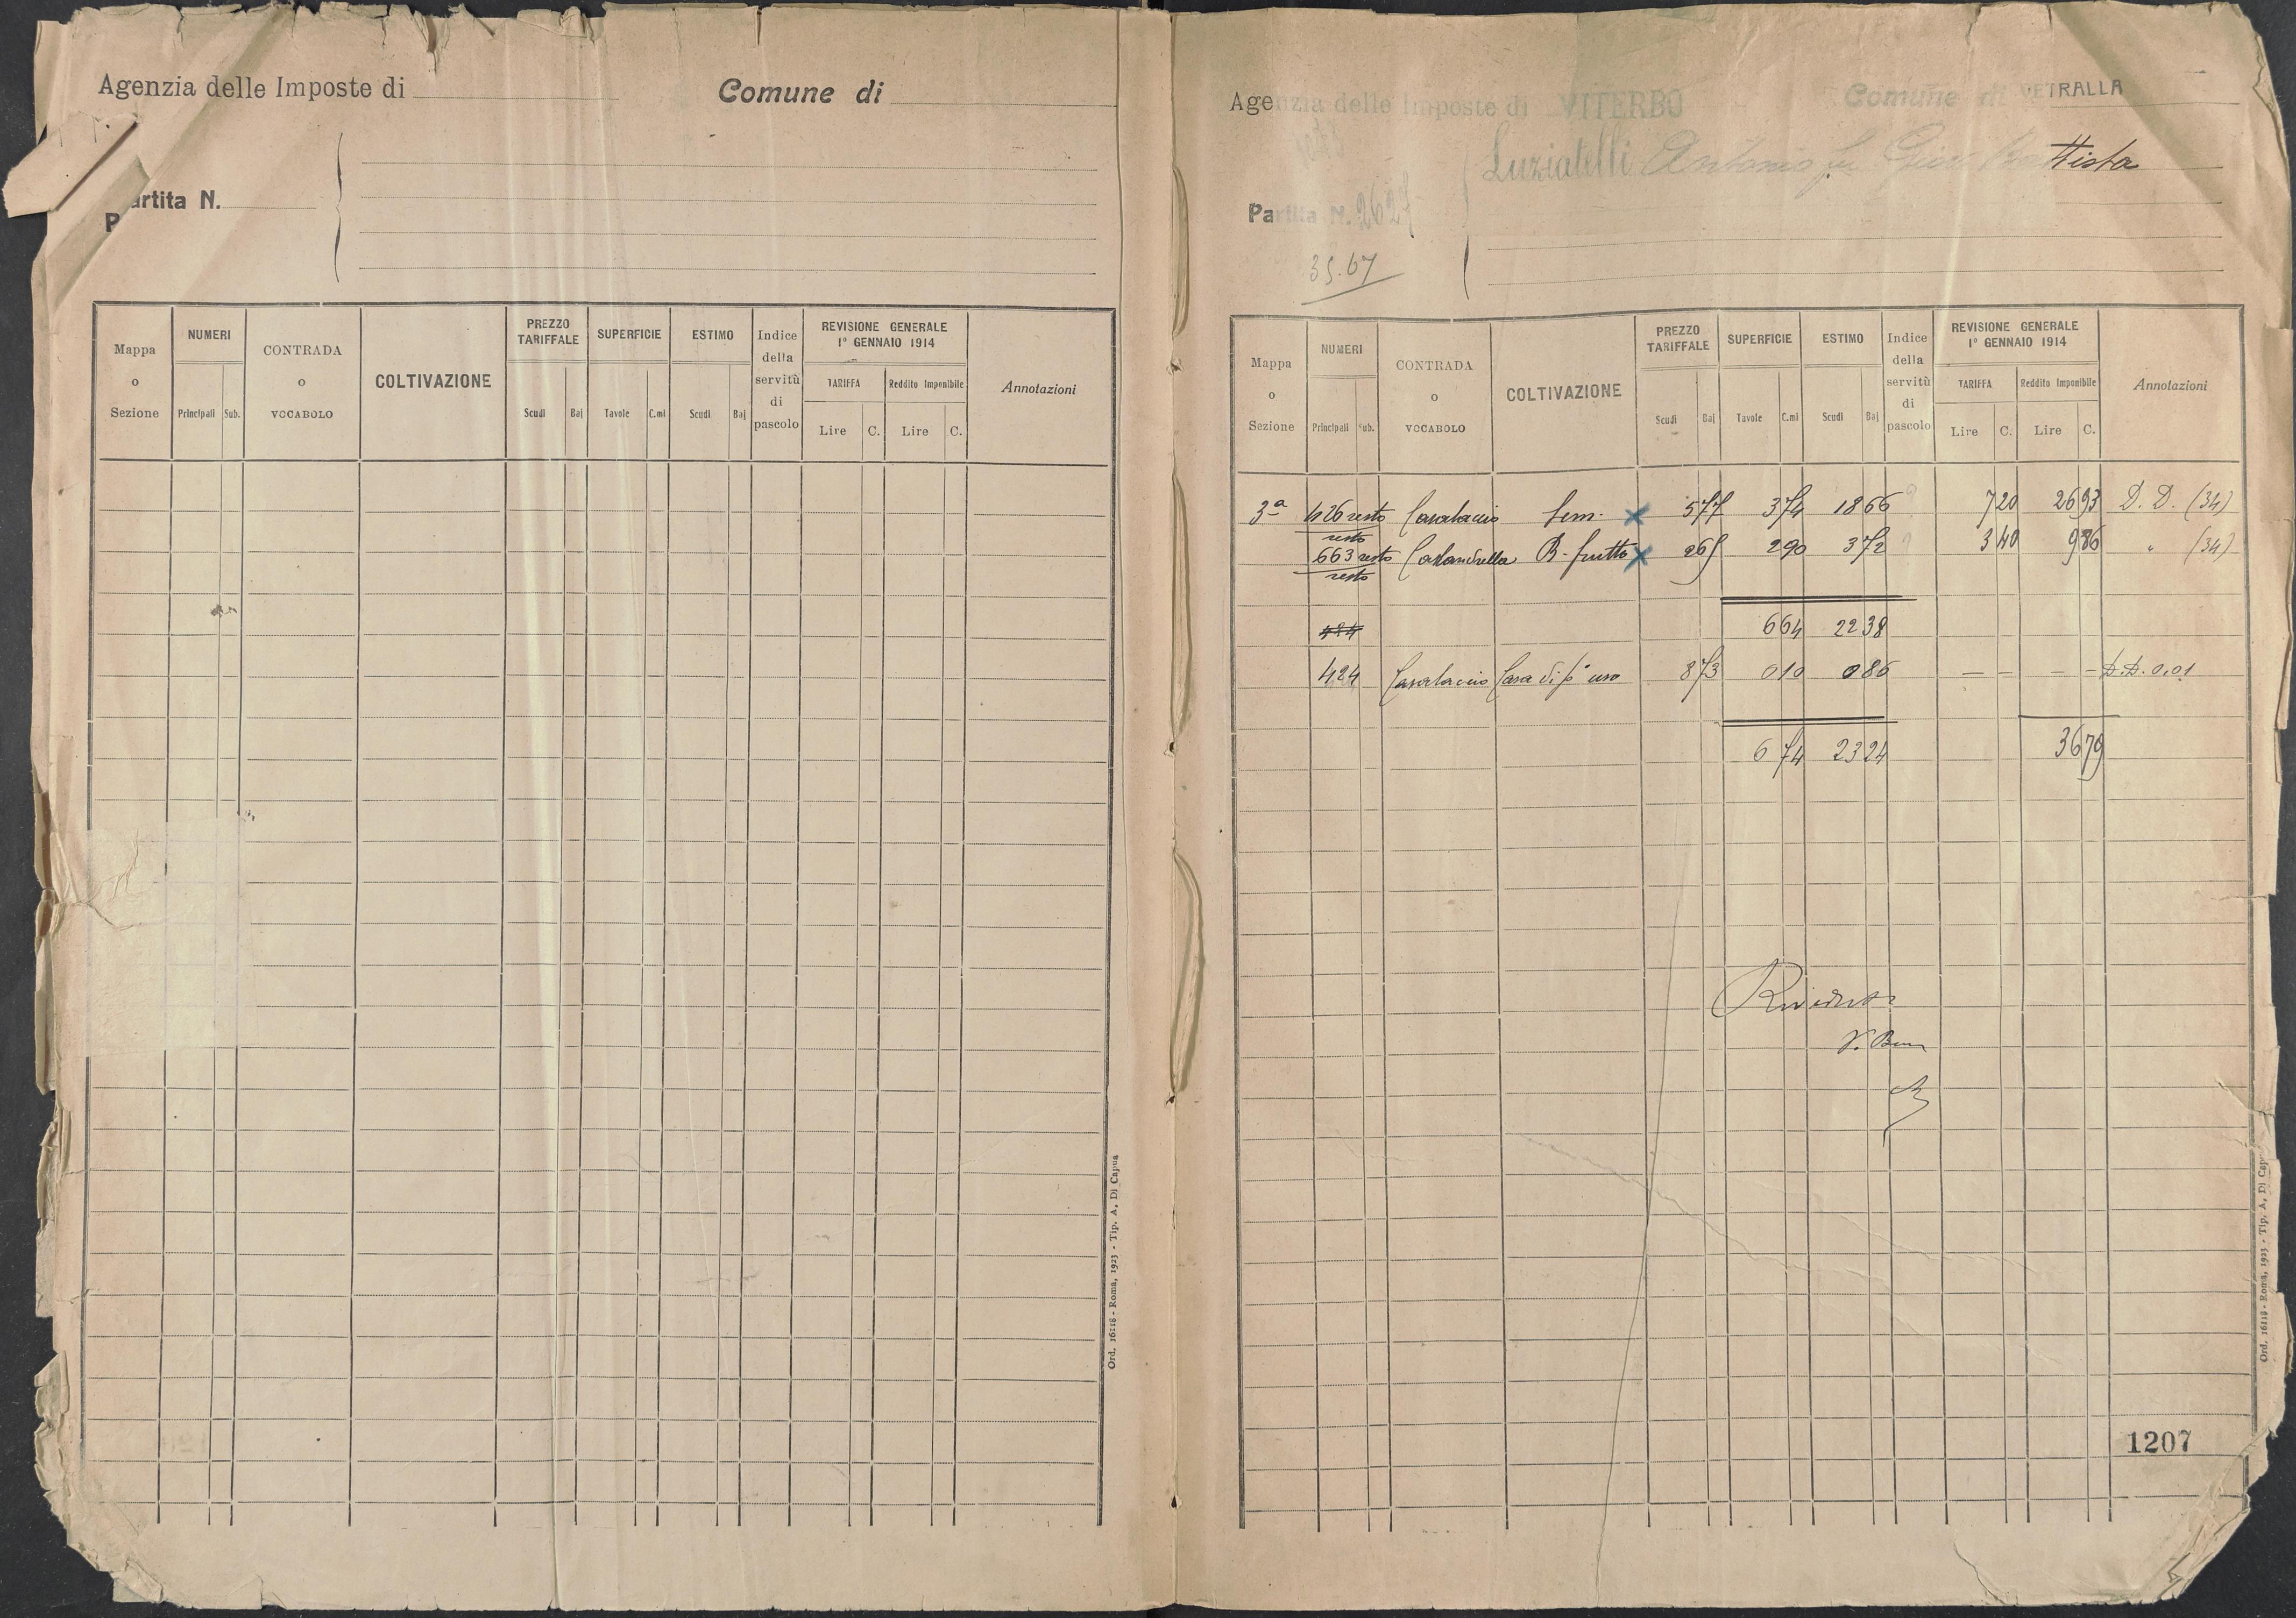 Agenzia delle Imposte di
Comune di
Partita N.
Mappa o Sezione
NUMERI
Principali Sub.
CONTRADA o VOCABOLO
COLTIVAZIONE
PREZZO TARIFFALE
Scudi Baj
SUPERFICIE
Tavole C.mi
ESTIMO
Scudi Baj
Indice della servitù di pascolo
REVISIONE GENERALE
1° GENNAIO 1914
TARIFFA
Lire C.
Reddito Imponibile
Lire C.
Annotazioni
Ord. 16118 - Roma, 1923 - Tip. A. Di Capua
Agenzia delle Imposte di VITERBO
Comune di VETRALLA
Luziatelli Antonio fu Giov Battista
Partita N. 2627
35.67
Mappa o Sezione
NUMERI
Principali Sub.
CONTRADA o VOCABOLO
COLTIVAZIONE
PREZZO TARIFFALE
Scudi Baj
SUPERFICIE
Tavole C.mi
ESTIMO
Scudi Baj
Indice della servitù di pascolo
REVISIONE GENERALE
1° GENNAIO 1914
TARIFFA
Lire C.
Reddito Imponibile
Lire C.
Annotazioni
3ª 426 resto Casalaccio Sem. x 577 374 1866 720 2693 D. D. (34)
resto
663 resto B. frutto x 265 290 372 340 986 " (34)
resto
424 664 2238
424 Casalaccio Casa di pº uso 873 010 086 — — — — D.D. 0,01
674 2324 3679
1207
Ord. 16118 - Roma, 1923 - Tip. A. Di Cap